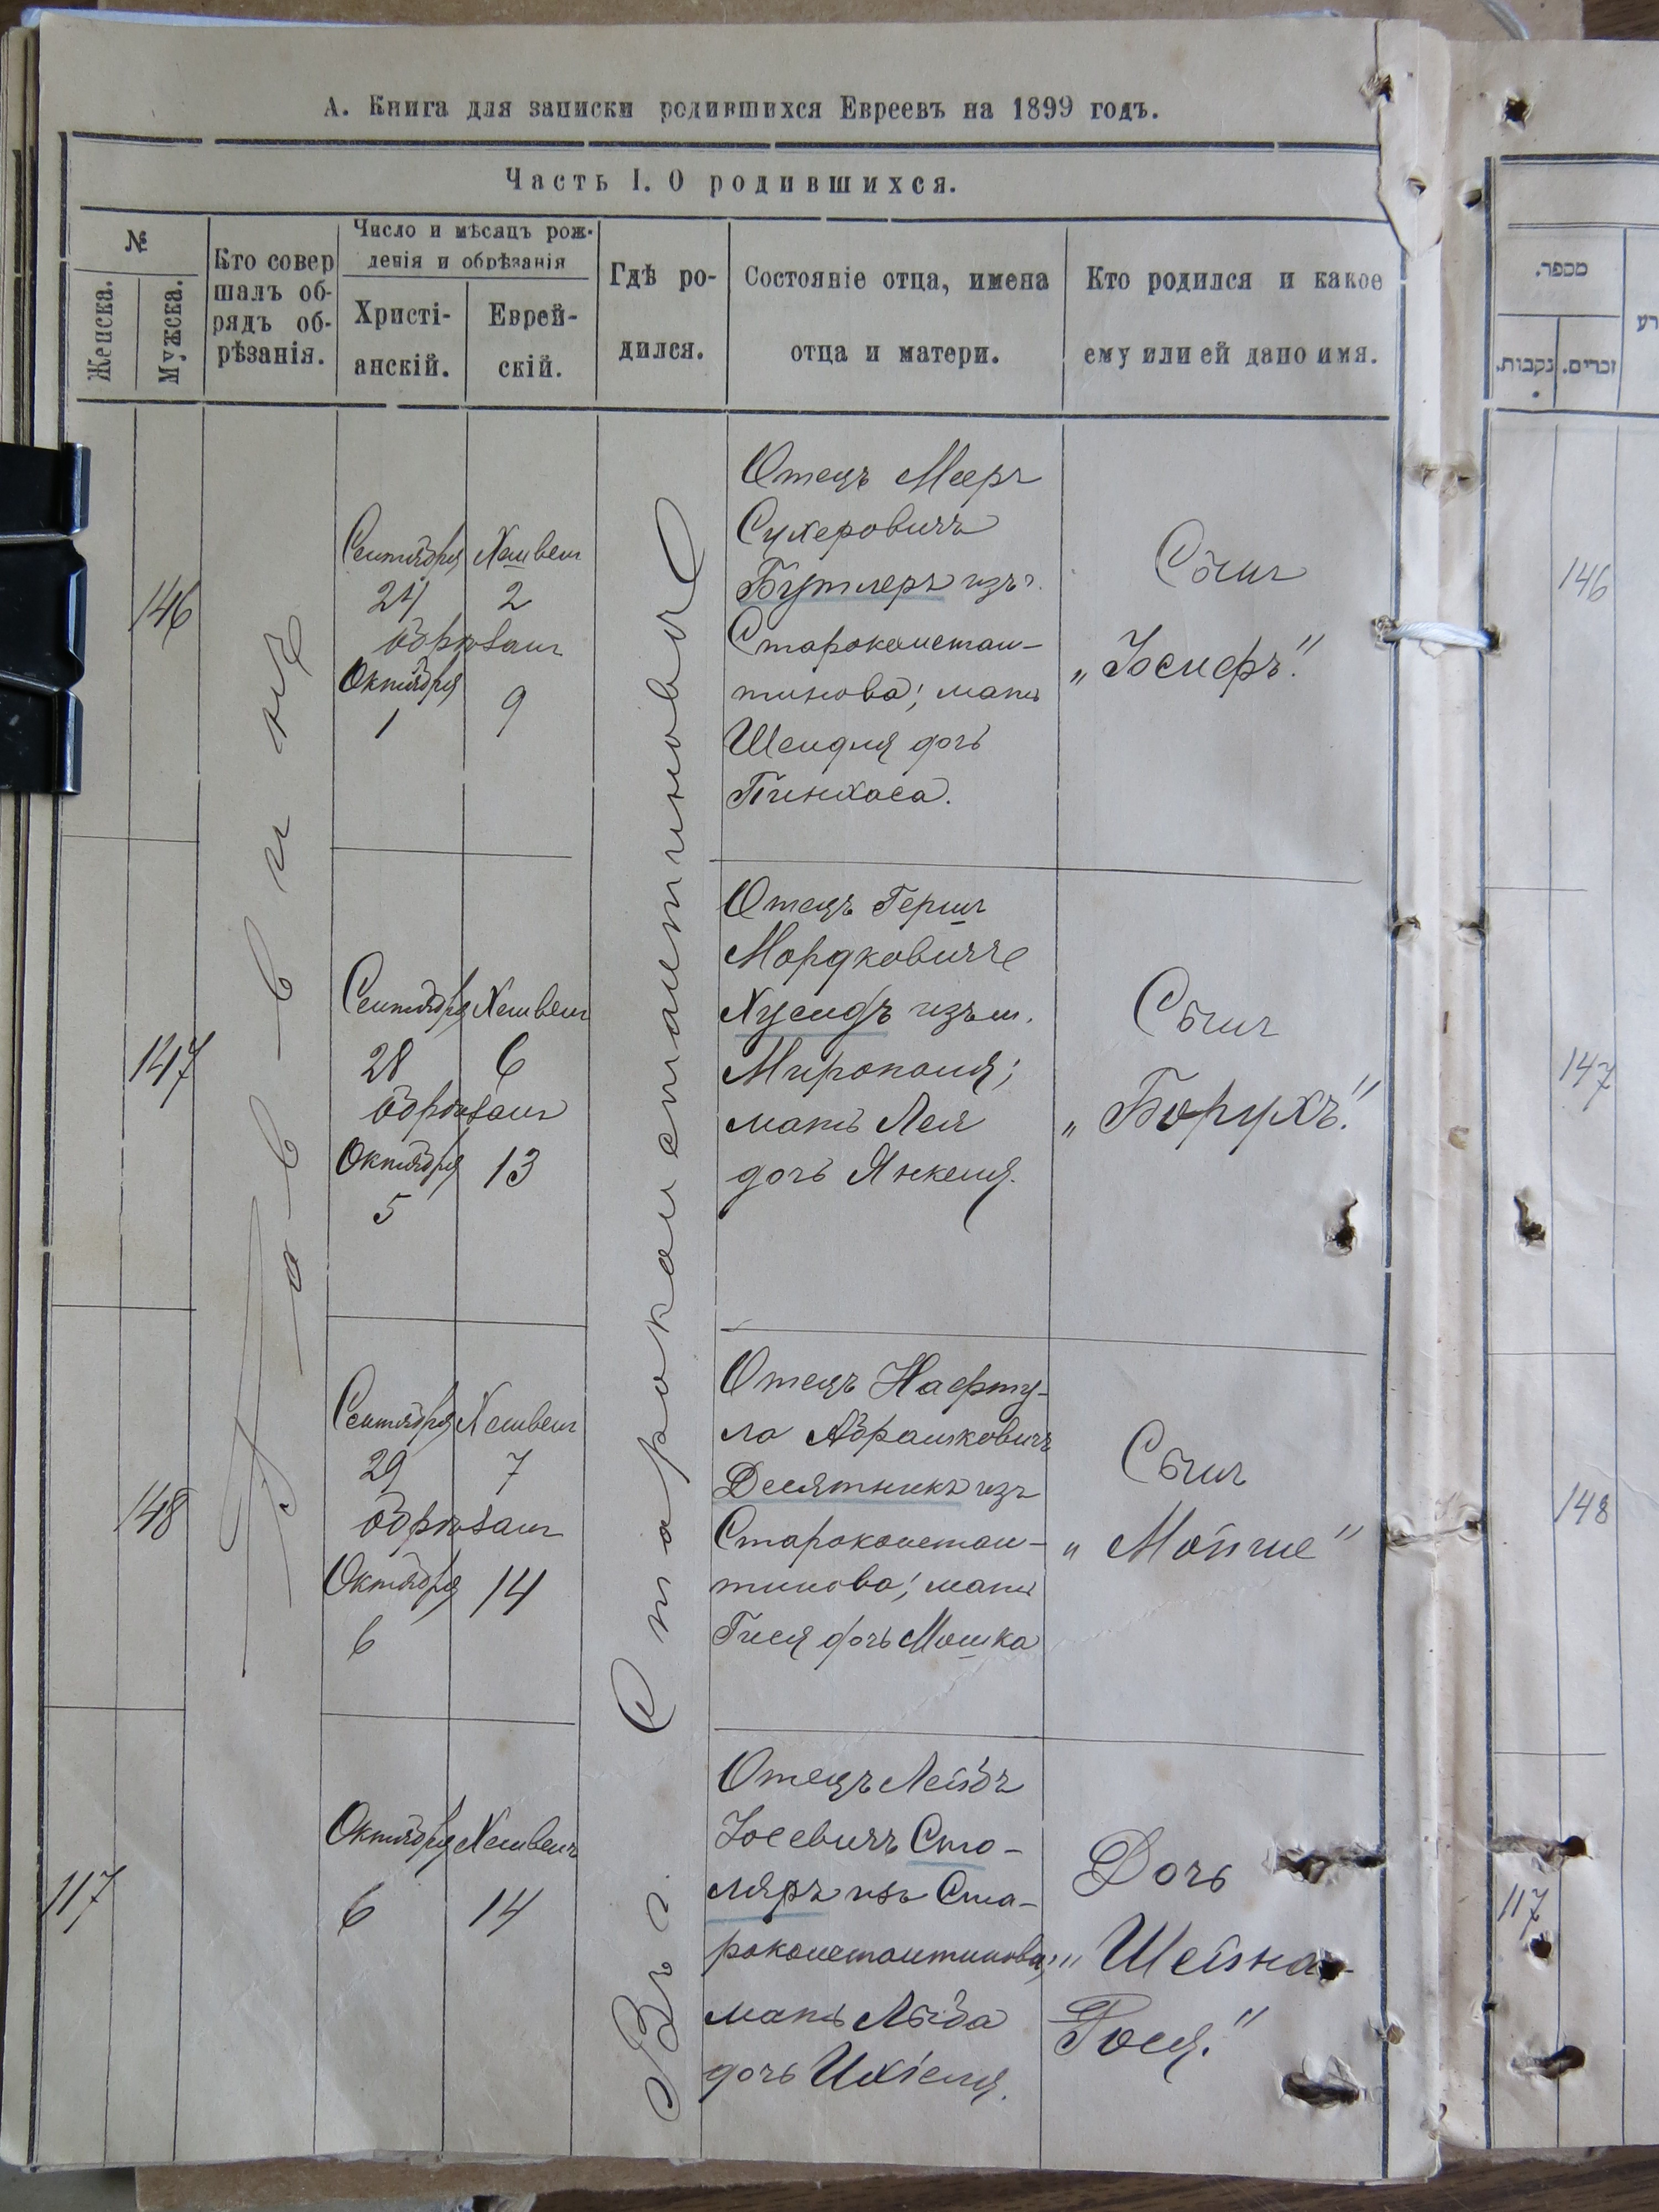 А. Книга для записки родившихся Евреевъ на 1899 годъ.
Часть I. О родившихся.
№
Женска.
Мужска.
Кто совер
шалъ об-
рядъ об-
рѣзанія.
Число и мѣсяцъ рож-
денія и обрѣзанія
Христі-
анскій.
Еврей-
скій.
Гдѣ ро-
дился.
Состояніе отца, имена
отца и матери.
Кто родился и какое
ему или ей дано имя.
Въ г. Староконстантиновѣ
146
Сентября
24
обрѣзанъ
Октября
1
Хешвенъ
2
9
Отецъ Мееръ
Сухеровичъ
Бутлеръ изъ г.
Староконстан-
тинова; мать
Шейдля дочь
Пинхаса.
Сынъ
„Іосифъ."
147
Сентября
28
обрѣзанъ
Октября
5
Хешвенъ
6
13
Отецъ Гершъ
Мордковичъ
Хусидъ изъ м.
Мирополя;
мать Лея
дочь Янкеля.
Сынъ
„Борухъ."
148
Сентября
29
обрѣзанъ
Октября
6
Хешвенъ
7
14
Отецъ Нафту-
ла Абрамковичъ
Десятникъ изъ
Староконстан-
тинова; мать
Гися дочь Мошка
Сынъ
„Мойше"
117
Октября
6
Хешвенъ
14
Отецъ Лейбъ
Іосевичъ Сто-
ляръ изъ Ста-
роконстантинова;
мать Лыба
дочь Ихіеля.
Дочь
„Шейна-
Рося."
מספר.
נקבות.
זכרים.
146
147
148
117